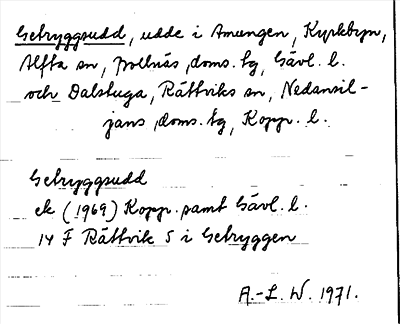 Getryggsudd, udde i Amungen, Kyrkbyn,
Alfta sn, Bollnäs doms. tg, Gävl. l.
och Dalstuga, Rättviks sn, Nedansil-
jans doms. tg, Kopp. l.
Getryggsudd
ek (1969) Kopp. samt Gävl. l.
14 F Rättvik S i Getryggen
A.-L. W. 1971.